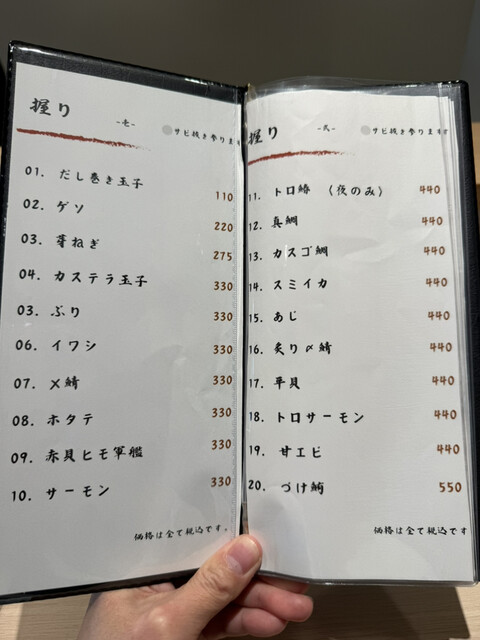 握り
-壱-
サビ抜き参ります
01. だし巻き玉子 110
02. ゲソ 220
03. 芽ねぎ 275
04. カステラ玉子 330
03. ぶり 330
06. イワシ 330
07. 〆鯖 330
08. ホタテ 330
09. 赤貝ヒモ軍艦 330
10. サーモン 330
価格は全て税込です。
握り
-弐-
サビ抜き参ります
11. トロ鰆 （夜のみ） 440
12. 真鯛 440
13. カスゴ鯛 440
14. スミイカ 440
15. あじ 440
16. 炙り〆鯖 440
17. 平貝 440
18. トロサーモン 440
19. 甘エビ 440
20. づけ鮪 550
価格は全て税込です